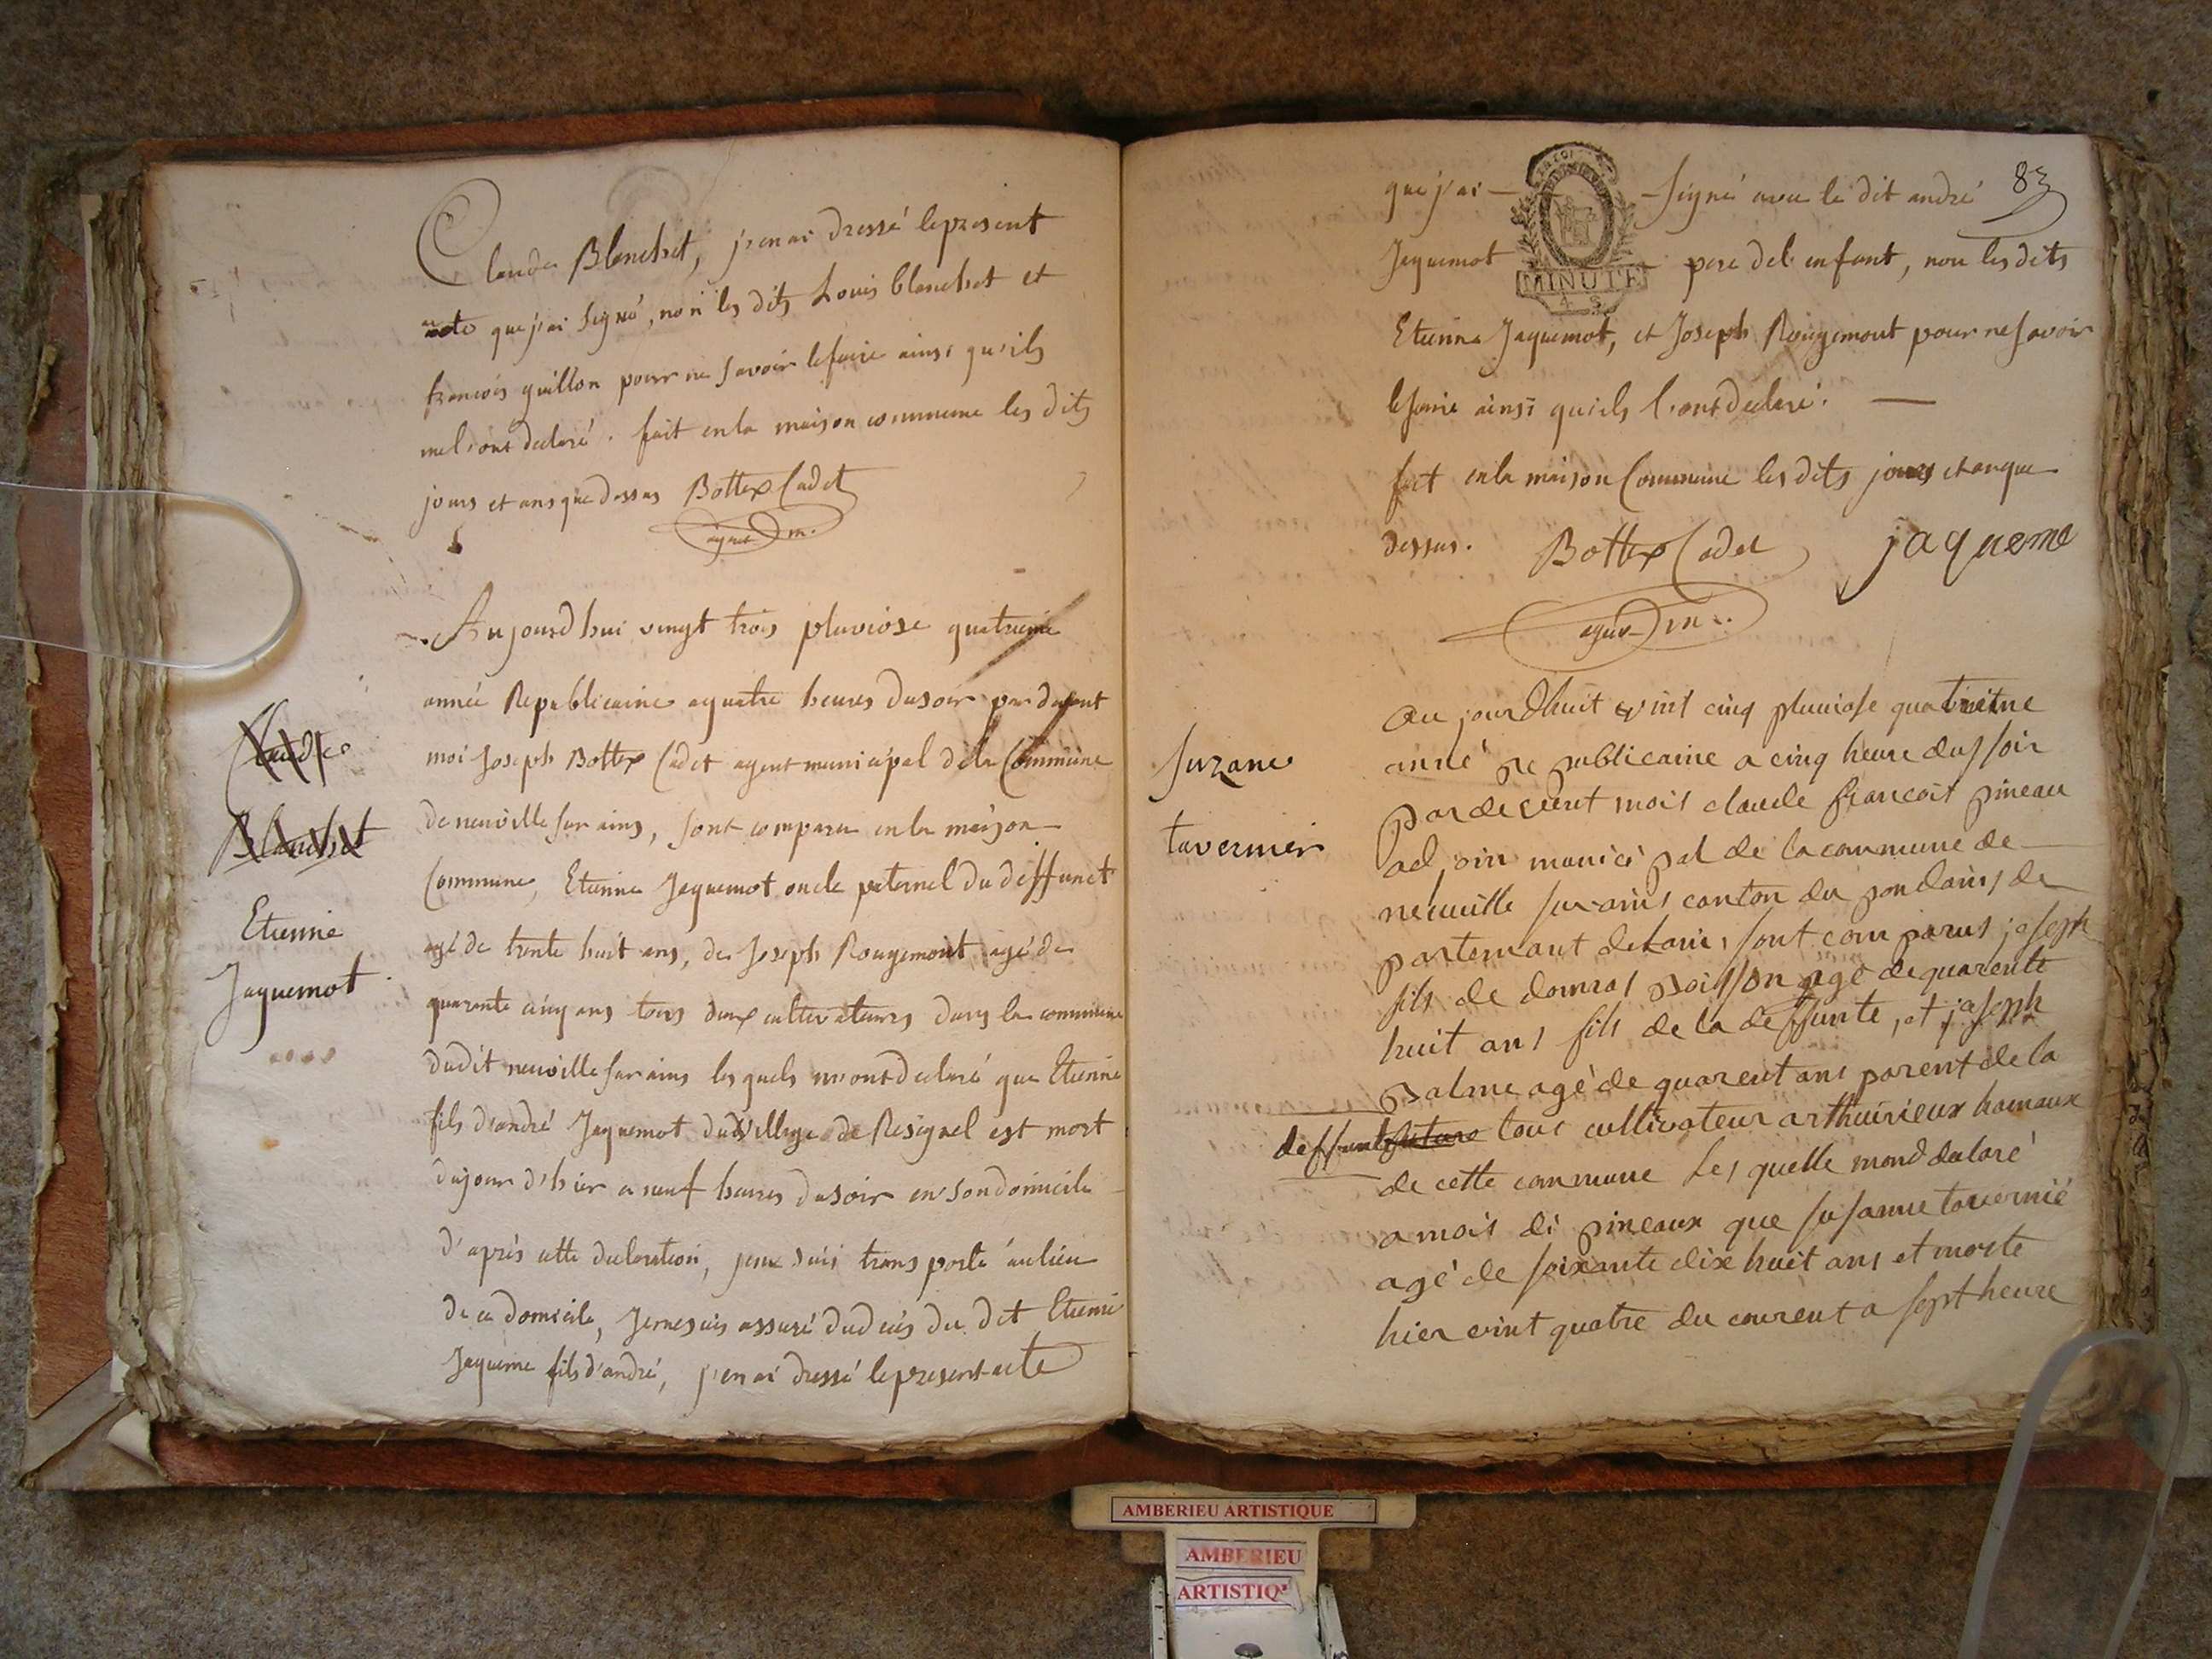 Claude Blanchet, j'en ai dressé le present
acte que j'ai signé, non les dits Louis blanchet et
francois guillon pour ne savoir le faire ainsi qu'ils
mel'ont declaré. fait en la maison commune les dits
jours et ans que dessus Bottex Cadet
agent m.
Aujourd'hui vingt trois pluviose quatrieme
année Republicaine a quatre heures du soir par devant
moi Joseph Bottex Cadet agent municipal de la Commune
de neuville sur ains, sont comparu en la maison
Commune, Etienne Jaquemot oncle paternel du deffunct
agé de trente huit ans, de Joseph Rougemont agé de
quarante cinq ans tous deux cultivateurs dans la commune
dudit neuville sur ains les quels m'ont declaré que Etienne
fils d'andré Jaquemot du village de Resignel est mort
du jour d'hier a neuf heures du soir en son domicile
d'après cette declaration, je me suis transporté au lieu
de ce domicile, Je me suis assuré du decès du dit Etienne
Jaqueme fils d'andré, j'en ai dressé le present acte
Claude
Blanchet
Etienne
Jaquemot
83
que j'ai — — signé avec le dit andré
Jaquemot — pere de l'enfant, non les dits
MINUTE
4 S
Etienne Jaquemot, et Joseph Rougemont pour ne savoir
le faire ainsi qu'ils l'ont declaré. —
fait en la maison Commune les dits jours et an que
dessus. Bottex Cadet jaqueme
agent m.
Suzane
tavernier
au jourdhuit vint cinq pluviose quatrieme
anné Re publicaine a cinq heure du soir
par devent mois claude francois pineau
adjoin municipal de la commune de
neuville sur ains canton du pondains de
partemant de lains sont com parus joseph
fils de domras poisson agé de quarente
huit ans fils de la deffunte, et joseph
palme agé de quarent ans parent de la
deffunte tous cultivateur a thuirieux hamaux
de cette commune Les quelle mond delaré
a mois di pineaux que susanne tavernié
agé de soixante dix huit ans et morte
hier vint quatre du courent a sept heure
AMBERIEU ARTISTIQUE
AMBERIEU
ARTISTIQ